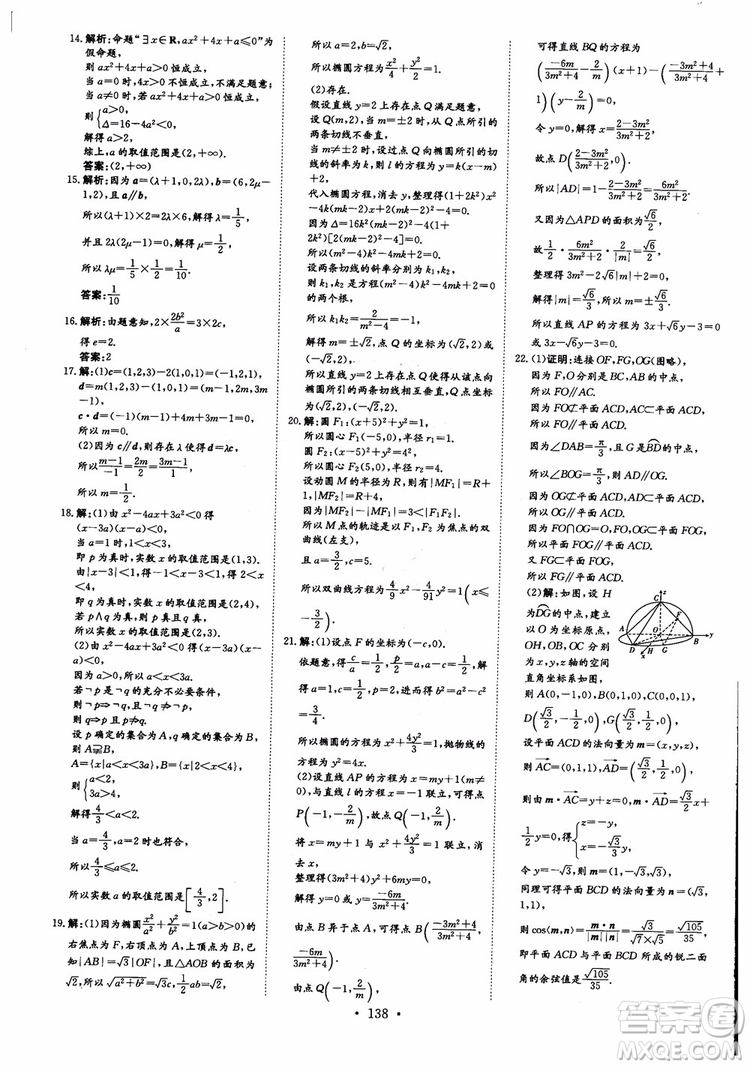 14. 解析:命题“∃x∈R, ax²+4x+a≤0”为
假命题,
则ax²+4x+a>0恒成立,
当a=0时,4x>0不恒成立,不满足题意;
当a≠0时,ax²+4x+a>0恒成立,
则{a>0,
Δ=16-4a²<0,
解得a>2;
综上,a的取值范围是(2,+∞).
答案:(2,+∞)
15. 解析:因为a=(λ+1,0,2λ),b=(6,2μ-
1,2),且a∥b,
所以(λ+1)×2=2λ×6,解得λ=1/5,
并且2μ-1=0,解得μ=1/2,
所以λμ=1/5×1/2=1/10.
答案:1/10
16. 解析:由题意知,2×2b²/a=3×2c,
得e=2.
答案:2
17. 解:(1)c=(1,2,3)-2(1,0,1)=(-1,2,1),
d=m(1,2,3)-(1,0,1)=(m-1,2m,3m-1).
c·d=(1-m)+4m+(3m-1)=0,
所以m=0.
(2)因为c∥d,所以d=λc,
所以m-1/-1=2m/2=3m-1/1,
所以m=1/2.
18. 解:(1)由x²-4ax+3a²<0得
(x-3a)(x-a)<0,
当a=1时,1<x<3,
即p为真时,实数x的取值范围是(1,3).
由|x-3|<1,得-1<x-3<1,得2<x
<4,
即q为真时,实数x的取值范围是(2,4),
若p∧q为真,则p真且q真,
所以实数x的取值范围是(2,3).
(2)由x²-4ax+3a²<0得
(x-3a)(x-a)<0,
因为a>0,所以A=(a,3a).
若¬p是¬q的充分不必要条件,
则¬p⇒¬q,
则q⇒p且p⇏q,
设p确定的集合为A,q确定的集合为B,
则A⫌B,
A={x|a<x<3a},B=(2,4),
则{a<2,
3a>4,
解得4/3<a<2.
当a=2,a=4/3时也符合,
所以4/3≤a≤2.
所以实数a的取值范围是[4/3,2].
19. 解:(1)因为椭圆x²/a²+y²/b²=1(a>b>0)的
右焦点为F,上顶点为A,右顶点为B,
已知|AB|=√3|OF|,且△AOB的面积为
√2,所以√(a²+b²)=√3c,½ab=√2,
所以a=2,b=√2,
所以椭圆方程为x²/4+y²/2=1.
(2)存在.
假设直线y=2上存在点Q满足题意,
设Q(m,2),当m=±2时,从点Q所引的
两条切线不垂直.
当m≠±2时,设过点Q向椭圆所引的切线
的斜率为k,则l的方程为y=k(x-m)
+2,
代入椭圆方程,整理得(1+2k²)x²
-4k(mk-2)x+2(mk-2)²-4=0.
因为Δ=16k²(mk-2)²-4(1+
2k²)[2(mk-2)²-4]=0,
所以(m²-4)k²-4mk+2=0.
设两条切线的斜率分别为k₁,k₂,
则k₁,k₂是方程(m²-4)k²-4mk+2=
0的两个根,
所以k₁k₂=2/(m²-4)=-1,
解得m=±√2,点Q的坐标为(√2,2)或
(-√2,2).
所以直线y=2上两点(√2,2),(-√2,2)向
椭圆所引的两条切线相互垂直,直线y=2
上存在点Q满足题意.
20. 解:圆F₁:(x+5)²+y²=1,
所以圆心F₁(-5,0),半径r₁=1.
圆F₂:(x-5)²+y²=4²,
所以圆心F₂(5,0),半径r₂=4.
设动圆M的半径为R,则有|MF₁|=R+
1,|MF₂|=R+4,
所以|MF₂|-|MF₁|=3<10,
所以点M的轨迹是以F₁,F₂为焦点的双
曲线(左支),
且a=3/2,c=5.
所以双曲线方程为4/9x²-4/91y²=1(x≤
-3/2).
21. 解:(1)设点F的坐标为(-c,0).
依题意,得c/a=1/2,p/2=a,a-c=1/2,
解得a=1,c=1/2,p=2,于是b²=a²-c²
=3/4.
所以椭圆的方程为x²+4y²/3=1,抛物线的
方程为y²=4x.
(2)设直线AP的方程为x=my-1(m≠
0),与直线x=-1联立,可得点
P(-1,-2/m),故点Q(-1,2/m).
将x=my+1与x²+4y²/3=1联立,消
去x,
整理得(3m²+4)y²+6my=0,
解得y=0或y=-6m/(3m²+4).
由点B异于点A,可得点B((-3m²+4)/(3m²+4),
-6m/(3m²+4)).
由点Q(-1,2/m),
可得直线BQ的方程为
(-6m/(3m²+4)-2/m)(x+1)-((-3m²+4)/(3m²+4)+
1)(y-2/m)=0,
令y=0,解得x=(2-3m²)/(3m²+2),
故点D((2-3m²)/(3m²+2),0).
所以|AD|=1-(2-3m²)/(3m²+2)=6m²/(3m²+2).
又因为△APD的面积为√6/2,
故1/2·6m²/(3m²+2)·2/|m|=√6/2,
整理得3m²-2√6|m|+2=0,
解得|m|=√6/3,所以m=±√6/3.
所以直线AP的方程为3x+√6y-3=0或
3x-√6y-3=0.
22. (1)证明:连接OF,FG,OG(图略).
因为F,O分别为BC,AB的中点,
所以FO∥AC.
因为FO⊄平面ACD,AC⊂平面ACD,
所以FO∥平面ACD.
因为∠DAB=π/3,且G是BD的中点,
所以∠BOG=π/3,所以OG∥AD.
因为OG⊄平面ACD,AD⊂平面ACD,
所以OG∥平面ACD.
因为FO∩OG=O,FO,OG⊂平面FOG,
所以平面FOG∥平面ACD.
又FG⊂平面FOG,
所以FG∥平面ACD.
(2)解:如图,设H
为DG的中点,建立
以O为坐标原点,
以OH,OB,OC为
x轴,y轴,z轴的空间
直角坐标系如图,
则A(0,-1,0),B(0,1,0),C(0,0,1),
D(√3/2,-1/2,0),G(√3/2,1/2,0).
设平面ACD的法向量为m=(x,y,z),
则AC=(0,1,1),AD=(√3/2,1/2,0),
则由m·AC=m·AD=0,得y+z=0,√3/2x+
1/2y=0,解得{z=-y,
x=-√3/3y,
令y=-√3,则m=(1,-√3,√3).
同理可得平面BCD的法向量n=(√3,
1,1),
则cos⟨m,n⟩=m·n/|m||n|=√3/(√7×√5)=√105/35,
即平面ACD与平面BCD所成的锐二面
角的余弦值是√105/35.
z
C
F
A
O
B
y
D
H
G
x
• 138 •
答案圈